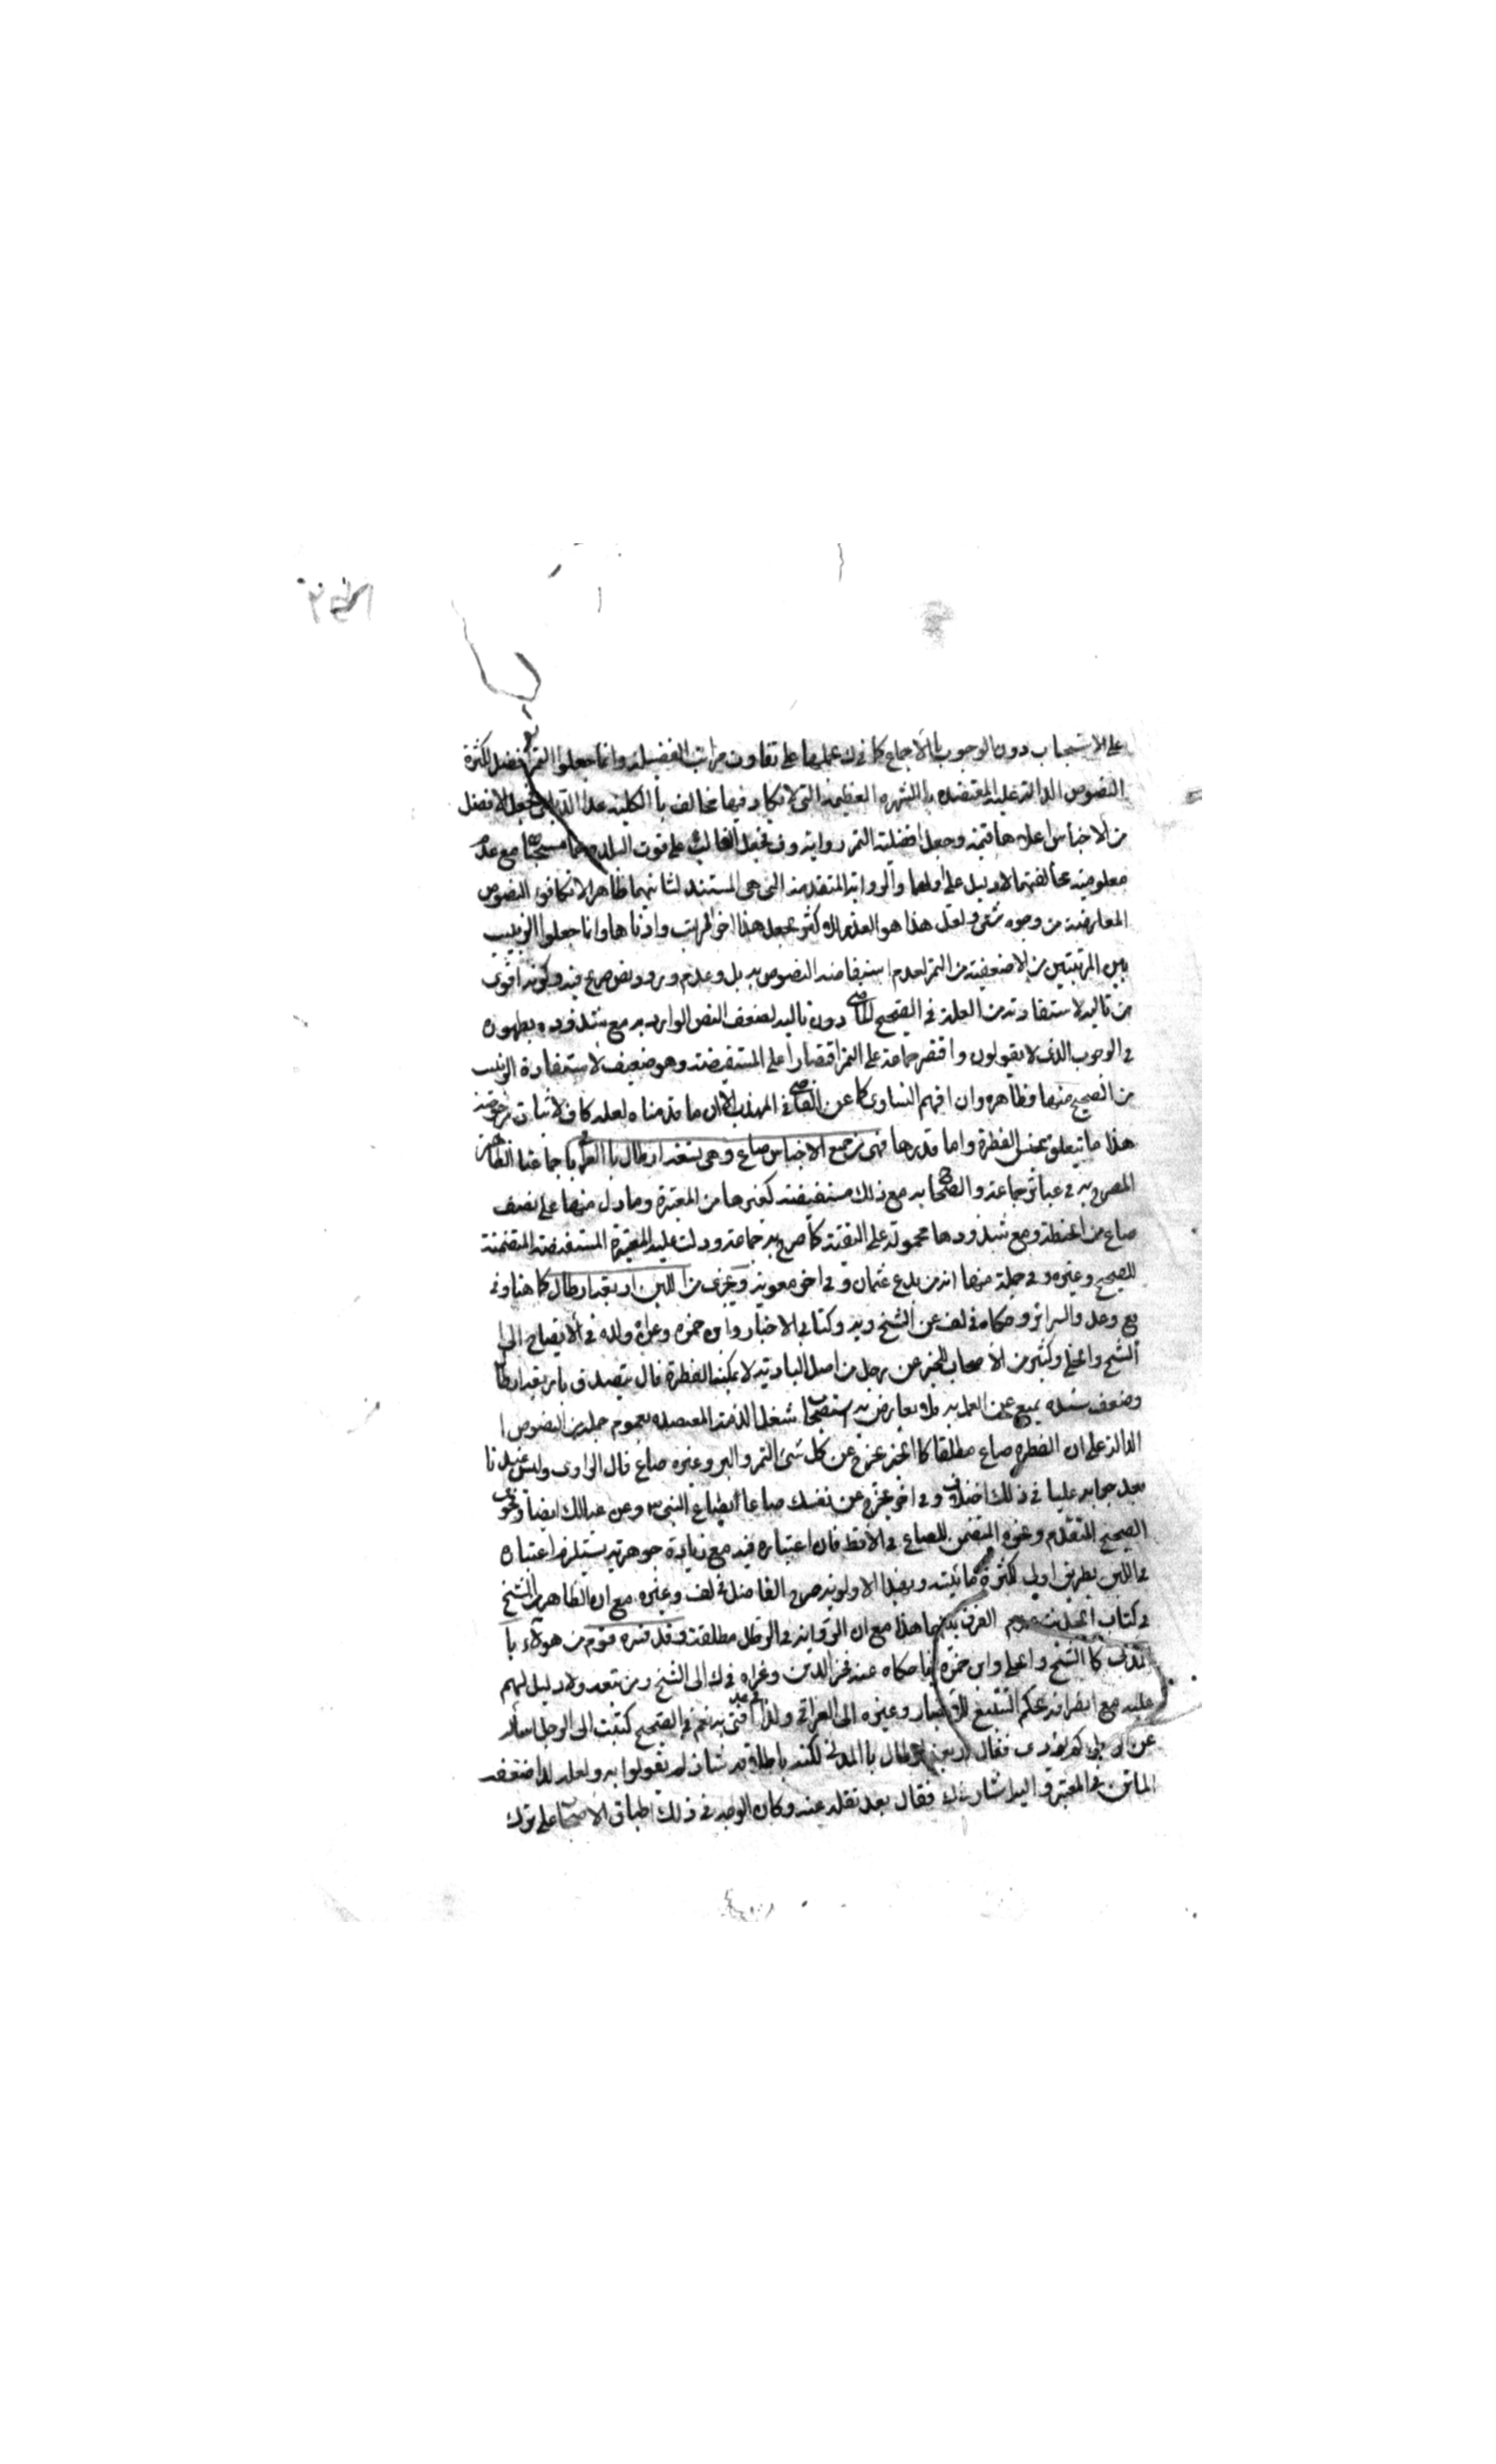 على الاستحباب دون الوجوب بالاجماع كما في ك عملها على تفاوت مراتب الفضيلة وانما جعلوا التمر افضل لكثرة
النصوص الدالة عليه المعتضدة بالشهرة العظيمة التي لا يكاد فيها مخالف بالكلية عدا الديلمي فجعل الافضل
من الاجناس اعلاها قيمة وجعل افضلية التمر رواية وف فجعل الغالب على قوت البلد مستحبا مع عدم
معلومية مخالفتهما لا دليل على اولهما والرواية المتقدمة التي هي المستند لثانيهما ظاهرا لا تكافؤ النصوص
المعارضة من وجوه شتى ولعل هذا هو العذر للاكثر بجعل هذا اخر المراتب وادناها وانما جعلوا الزبيب
بين المرتبتين من لا ضعفية من التمر لعدم استفاضة النصوص به بل وعدم ورود نص صريح فيه وكونه اقوى
من تاليه لاستفادته من العلة في الصحيح الماضي دون تاليه لضعف النص الوارد به مع شذوذه وظهوره
في الوجوب الذي لا يقولون واقتصر جماعة على التمر اقتصارا على المستفيضة وهو ضعيف لاستفادة الزبيب
من الصحيح منها فظاهره وان افهم التساوي كما عن القاضي في المهذب الا ان ما قدمناه لعله كاف لاثبات مرجوحيته
هذا ما يتعلق بجنس الفطرة واما قدرها فهي من جميع الاجناس صاع وهي تسعة ارطال بالعراقي باجماعنا الظاهر
المصرح به في عبائر جماعة والصحاح به مع ذلك مستفيضة كغيرها من المعتبرة وما دل منها على نصف
صاع من الحنطة ومع شذوذها محمولة على التقية كما صرح به جماعة ودلت عليه المعتبرة المستفيضة المتضمنة
للصحيح وغيره وفي جملة منها انه من بدع عثمان وفي اخر معوية ويجزي من اللبن اربعة ارطال كما هنا وفي
يع وعد والسرائر وحكاه في لف عن الشيخ وير وكتابي الاخبار وابن حمزه وعزاه ولده في الايضاح الى
الشيخ والحلي وكثير من الاصحاب للخبر عن رجل من اهل البادية لا يمكنه الفطرة قال يتصدق باربعة ارطال
وضعف سنده يمنع عن العمل به ولو يعارض به استصحاب شغل الذمة المعتضده بعموم جملة من النصوص
الدالة على ان الفطره صاع مطلقا كالخبر تخرج عن كل شئ التمر والبر وغيره صاع قال الراوي وليس عندنا
بعد جوابه علينا في ذلك اختلاف وفي اخر تخرج عن نفسك صاعا بصاع النبي ص وعن عيالك ايضا ونحوه
الصحيح المتقدم وغيره المتضمن للصاع في الاقط فان اعتباره فيه مع زيادة جوهريته يستلزم اعتباره
في اللبن بطريق اولى لكثرة مائيته وبهذا الاولوية صرح الفاضل في لف وغيره مع ان الظاهر من الشيخ
في كتاب الحديث عدم الفرق بينهما هذا مع ان الرواية في الرطل مطلقة وقد فسره قوم من هؤلاء با
المدني كالشيخ والحلي وابن حمزة فيما حكاه عنه فخر الدين وعزاه في ك الى الشيخ ومن تبعه ولا دليل لهم
عليه مع انصرافه بحكم التتبع للاخبار وغيره الى العراقي ولذا افتى به نعم في الصحيح كتبت الى الرجل اساله
عن الفطرة كم يؤدى فقال اربعة ارطال بالمدني لكنه باطلاقه شاذ لم يقولوا به ولعله لذا ضعفه
الماتن في المعتبر واليه اشار في ك فقال بعد نقله عنه وكان الوجه في ذلك اطباق الاصحاب على ترك